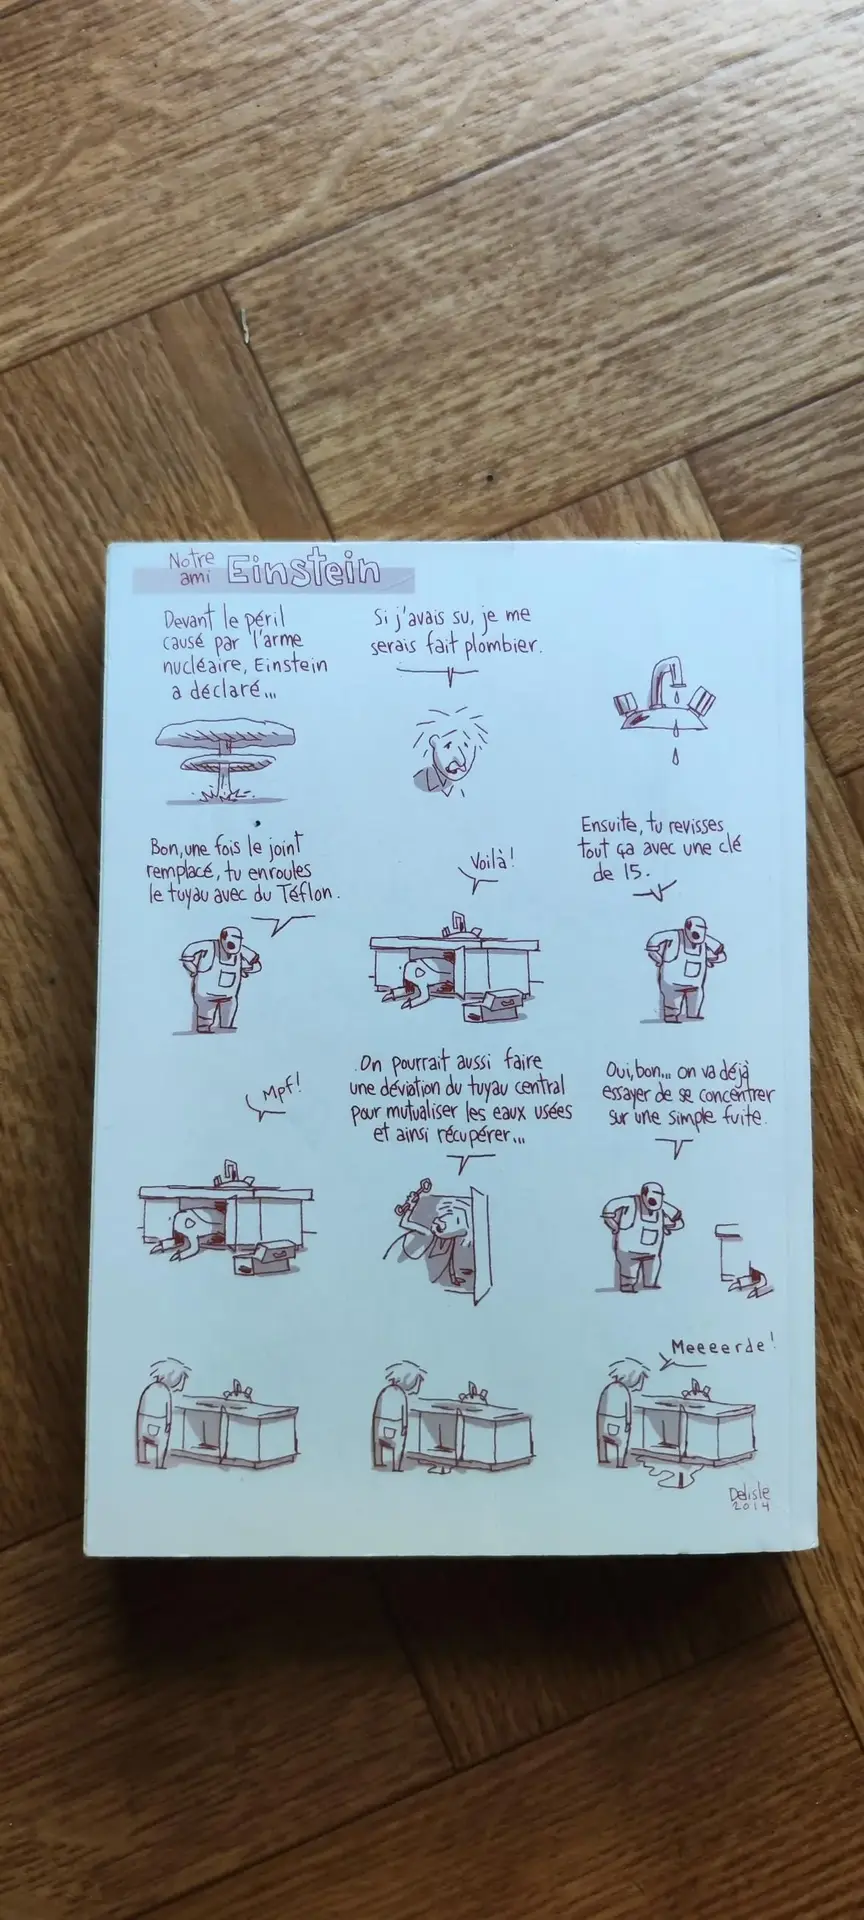 Notre
ami Einstein
Devant le péril
causé par l'arme
nucléaire, Einstein
a déclaré...
Si j'avais su, je me
serais fait plombier.
Bon, une fois le joint
remplacé, tu enroules
le tuyau avec du Téflon.
Voilà!
Ensuite, tu revisses
tout ça avec une clé
de 15.
Mpf!
On pourrait aussi faire
une déviation du tuyau central
pour mutualiser les eaux usées
et ainsi récupérer...
Oui, bon... on va déjà
essayer de se concentrer
sur une simple fuite.
Meeeerde!
Delisle
2014